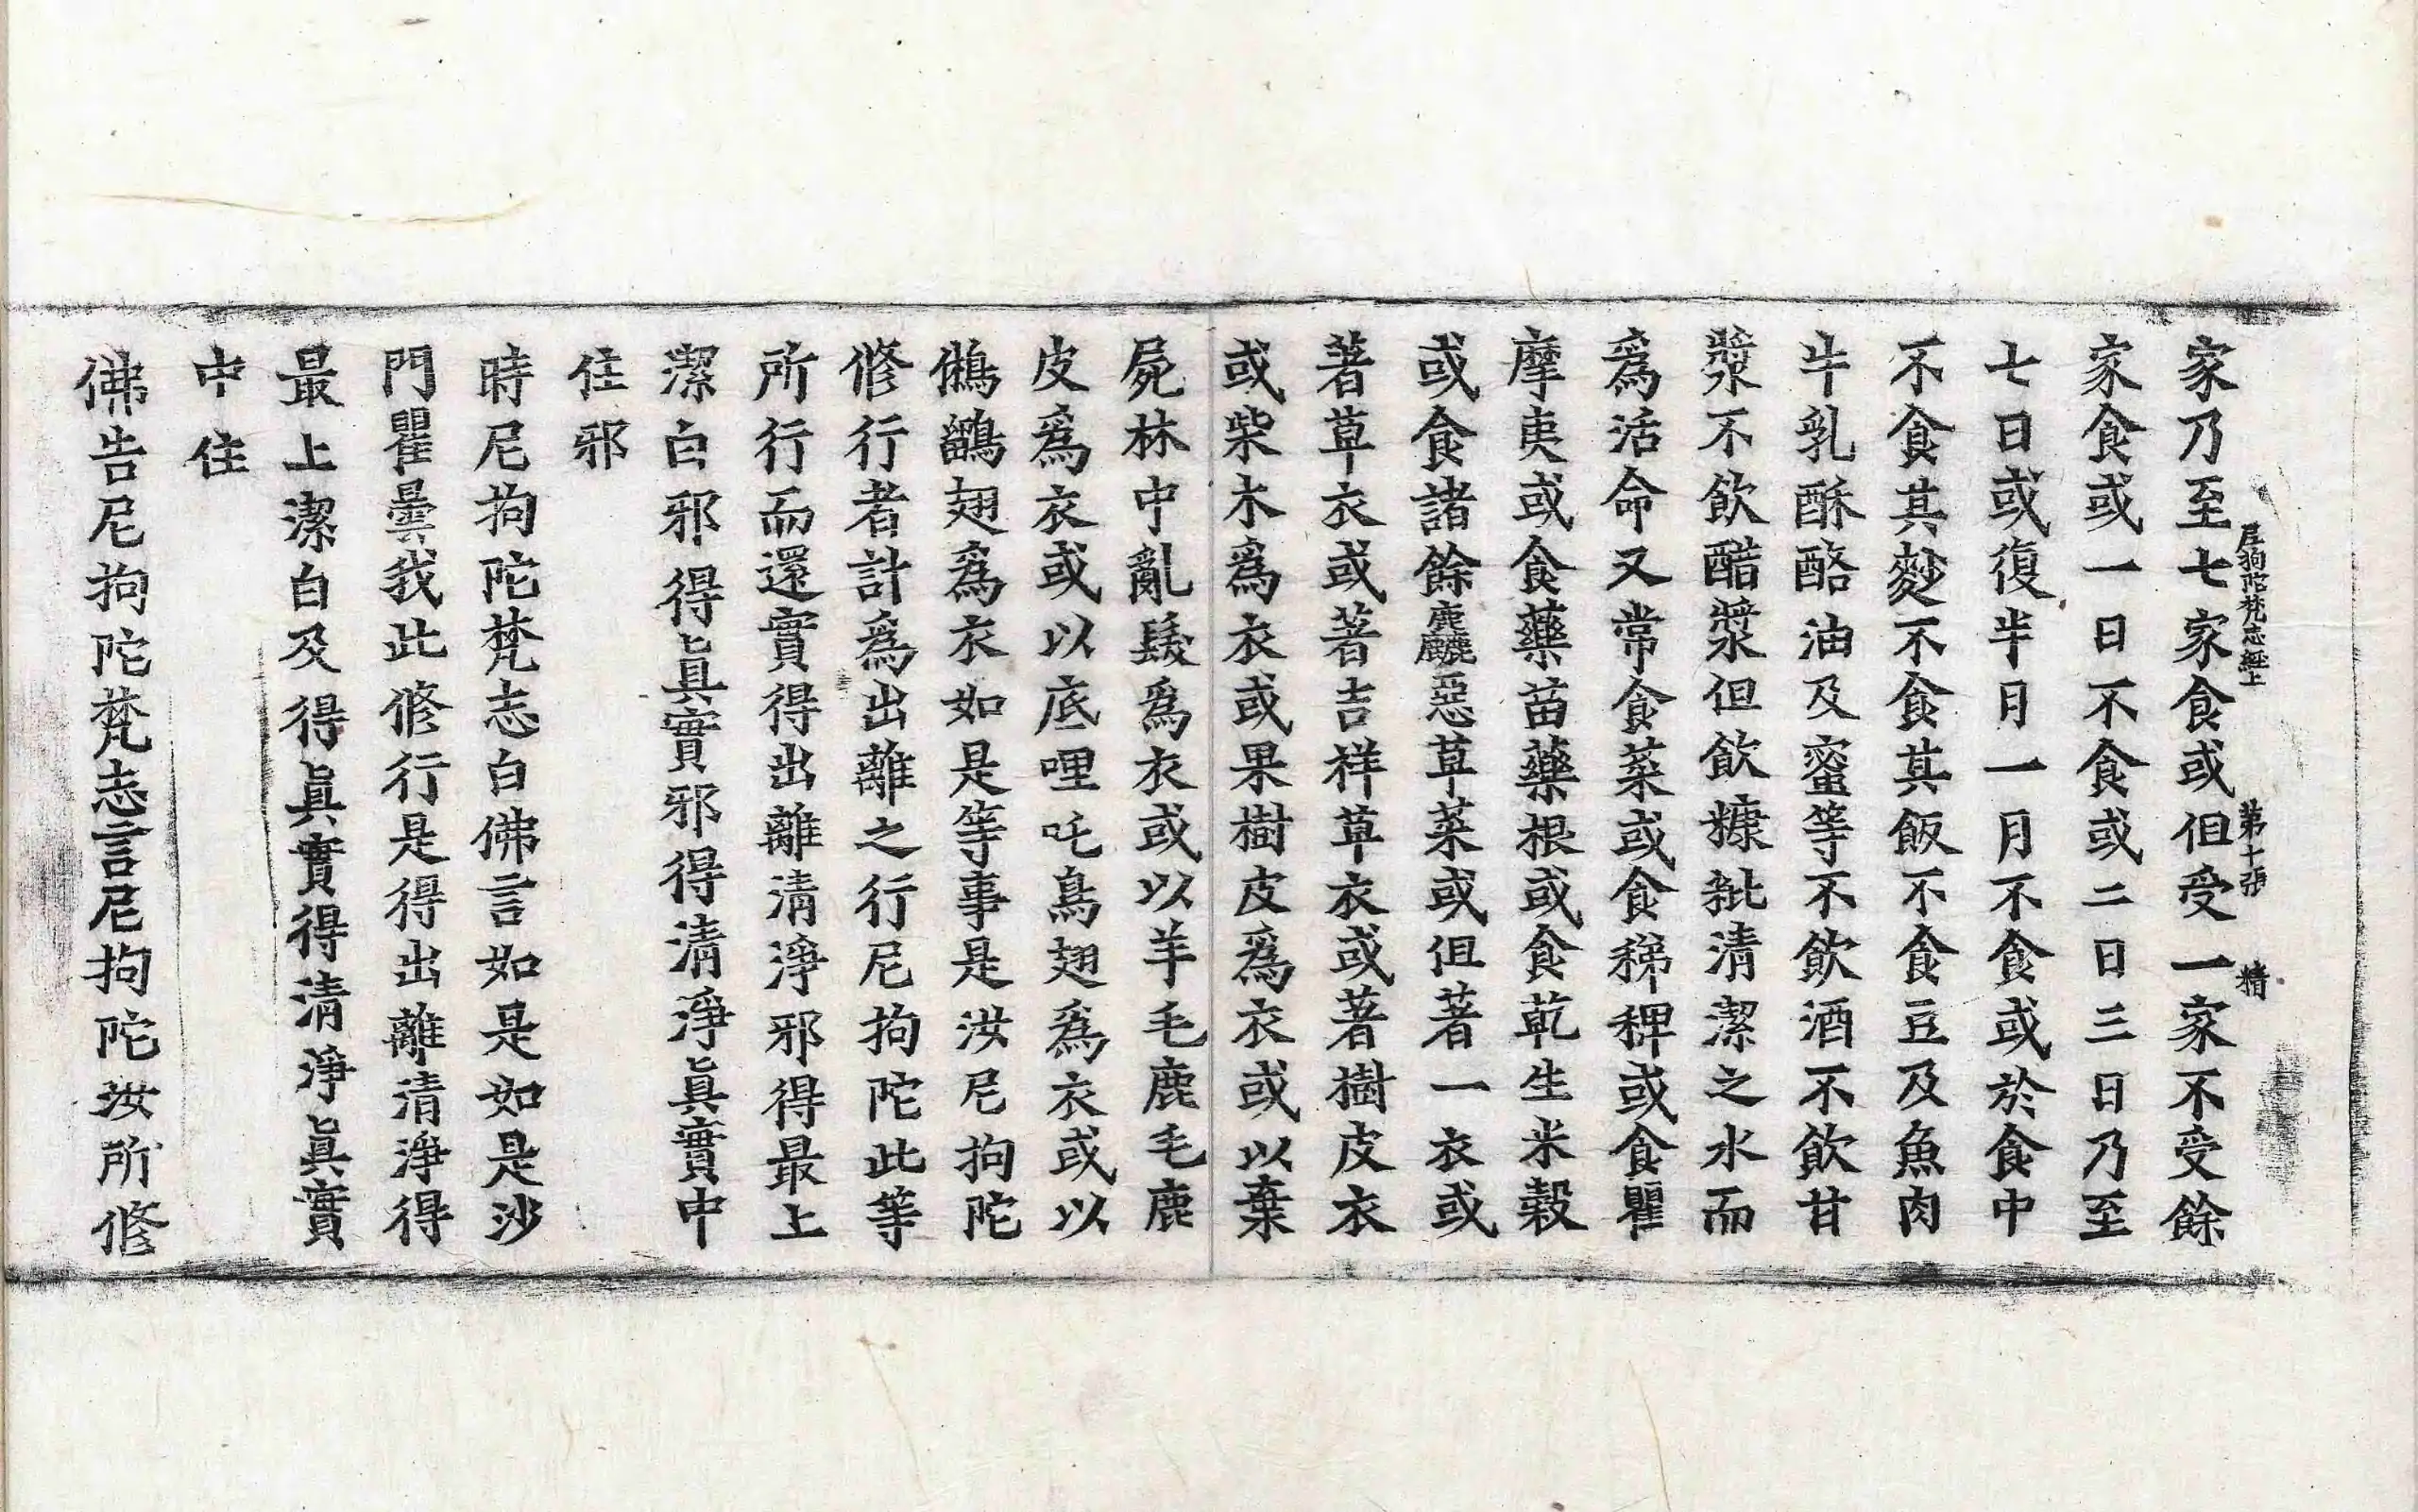 家乃至七家食或但受一家不受餘
尼拘陀梵志經上 第十張 精
家食或一日不食或二日三日乃至
七日或復半月一月不食或於食中
不食其麨不食其飯不食豆及魚肉
牛乳酥酪油及蜜等不飲酒不飲甘
漿不飲醋漿但飲糠粃清潔之水而
爲活命又常食菜或食稊稗或食瞿
摩夷或食藥苗藥根或食乾生米穀
或食諸餘麤惡草菜或但著一衣或
著草衣或著吉祥草衣或著樹皮衣
或柴木爲衣或果樹皮爲衣或以棄
屍林中亂髮爲衣或以羊毛鹿毛鹿
皮爲衣或以底哩吒鳥翅爲衣或以
鵂鶹翅爲衣如是等事是汝尼拘陀
修行者計爲出離之行尼拘陀此等
所行而還實得出離清淨邪得最上
潔白邪得眞實邪得清淨眞實中
住邪
時尼拘陀梵志白佛言如是如是沙
門瞿曇我此修行是得出離清淨得
最上潔白及得眞實得清淨眞實
中住
佛告尼拘陀梵志言尼拘陀汝所修